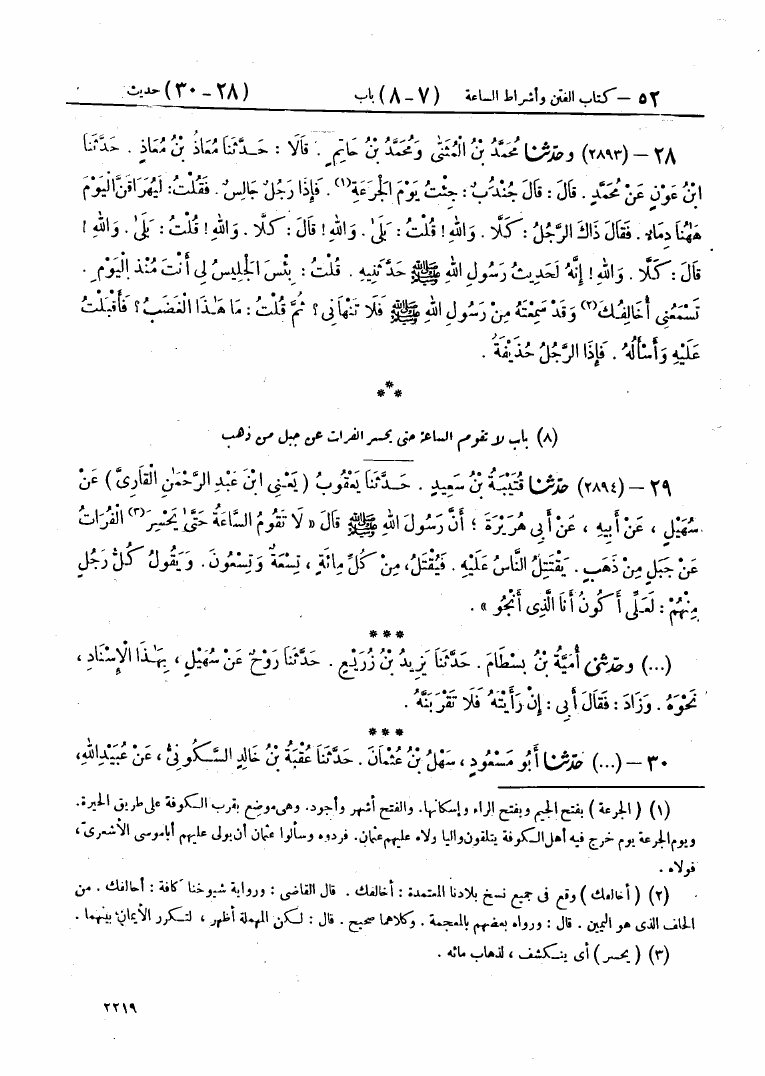 ٥٢ – كتاب الفتن وأشراط الساعة (٧-٨) باب (٢٨-٣٠) حديث
٢٨ – (٢٨٩٣) وحدّثنا مُحَمَّدُ بْنُ الْمُثَنَّىٰ وَمُحَمَّدُ بْنُ حَاتِمٍ . قَالَا : حَدَّثَنَا مُعَاذُ بْنُ مُعَاذٍ . حَدَّثَنَا
ابْنُ عَوْنٍ عَنْ مُحَمَّدٍ . قَالَ : قَالَ جُنْدُبٌ : جِئْتُ يَوْمَ الْجَرَعَةِ(١) . فَإِذَا رَجُلٌ جَالِسٌ . فَقُلْتُ : لَيُهَرَاقَنَّ الْيَوْمَ
هَٰهُنَا دِمَاءٌ . فَقَالَ ذَاكَ الرَّجُلُ : كَلَّا . وَاللهِ ! قُلْتُ : بَلَىٰ . وَاللهِ ! قَالَ : كَلَّا . وَاللهِ ! قُلْتُ : بَلَىٰ . وَاللهِ !
قَالَ : كَلَّا . وَاللهِ ! إِنَّهُ لَحَدِيثُ رَسُولِ اللهِ ﷺ حَدَّثَنِيهِ . قُلْتُ : بِئْسَ الْجَلِيسُ لِي أَنْتَ مُنْذُ الْيَوْمِ .
تَسْمَعُنِي أُخَالِفُكَ(٢) وَقَدْ سَمِعْتَهُ مِنْ رَسُولِ اللهِ ﷺ فَلَا تَنْهَانِي ؟ ثُمَّ قُلْتُ : مَا هَٰذَا الْغَضَبُ ؟ فَأَقْبَلْتُ
عَلَيْهِ وَأَسْأَلُهُ . فَإِذَا الرَّجُلُ حُذَيْفَةُ .
***
(٨) باب لا تقوم الساعة حتى يحسر الفرات عن جبل من ذهب
٢٩ – (٢٨٩٤) حدّثنا قُتَيْبَةُ بْنُ سَعِيدٍ . حَدَّثَنَا يَعْقُوبُ (يَعْنِي ابْنَ عَبْدِ الرَّحْمَٰنِ الْقَارِيَّ) عَنْ
سُهَيْلٍ ، عَنْ أَبِيهِ ، عَنْ أَبِي هُرَيْرَةَ ؛ أَنَّ رَسُولَ اللهِ ﷺ قَالَ « لَا تَقُومُ السَّاعَةُ حَتَّىٰ يَحْسِرَ(٣) الْفُرَاتُ
عَنْ جَبَلٍ مِنْ ذَهَبٍ . يَقْتَتِلُ النَّاسُ عَلَيْهِ . فَيُقْتَلُ ، مِنْ كُلِّ مِائَةٍ ، تِسْعَةٌ وَتِسْعُونَ . وَيَقُولُ كُلُّ رَجُلٍ
مِنْهُمْ : لَعَلِّي أَكُونُ أَنَا الَّذِي أَنْجُو » .
***
(...) وحدّثني أُمَيَّةُ بْنُ بِسْطَامَ . حَدَّثَنَا يَزِيدُ بْنُ زُرَيْعٍ . حَدَّثَنَا رَوْحٌ عَنْ سُهَيْلٍ ، بِهَٰذَا الْإِسْنَادِ ،
نَحْوَهُ . وَزَادَ : فَقَالَ أَبِي : إِنْ رَأَيْتَهُ فَلَا تَقْرَبَنَّهُ .
***
٣٠ – (...) حدّثنا أَبُو مَسْعُودٍ ، سَهْلُ بْنُ عُثْمَانَ . حَدَّثَنَا عُقْبَةُ بْنُ خَالِدٍ السَّكُونِيُّ ، عَنْ عُبَيْدِ اللهِ ،
(١) (الجرعة) بفتح الجيم وبفتح الراء وإسكانها. والفتح أشهر وأجود. وهى موضع بقرب الكوفة على طريق الحيرة.
ويوم الجرعة يوم خرج فيه أهل الكوفة يتلقون واليا ولاه عليهم عثمان. فردوه وسألوا عثمان أن يولى عليهم أباموسى الأشعرىّ ،
فولاه .
(٢) (أخالفك) وقع فى جميع نسخ بلادنا المعتمدة : أخالفك . قال القاضى : ورواية شيوخنا كافة : أحالفك . من
الحلف الذى هو اليمين . قال : ورواه بعضهم بالمعجمة . وكلاهما صحيح . قال : لكن المهملة أظهر ، لتكرر الأيمان بينهما .
(٣) (يحسر) أى ينكشف ، لذهاب مائه .
٢٢١٩